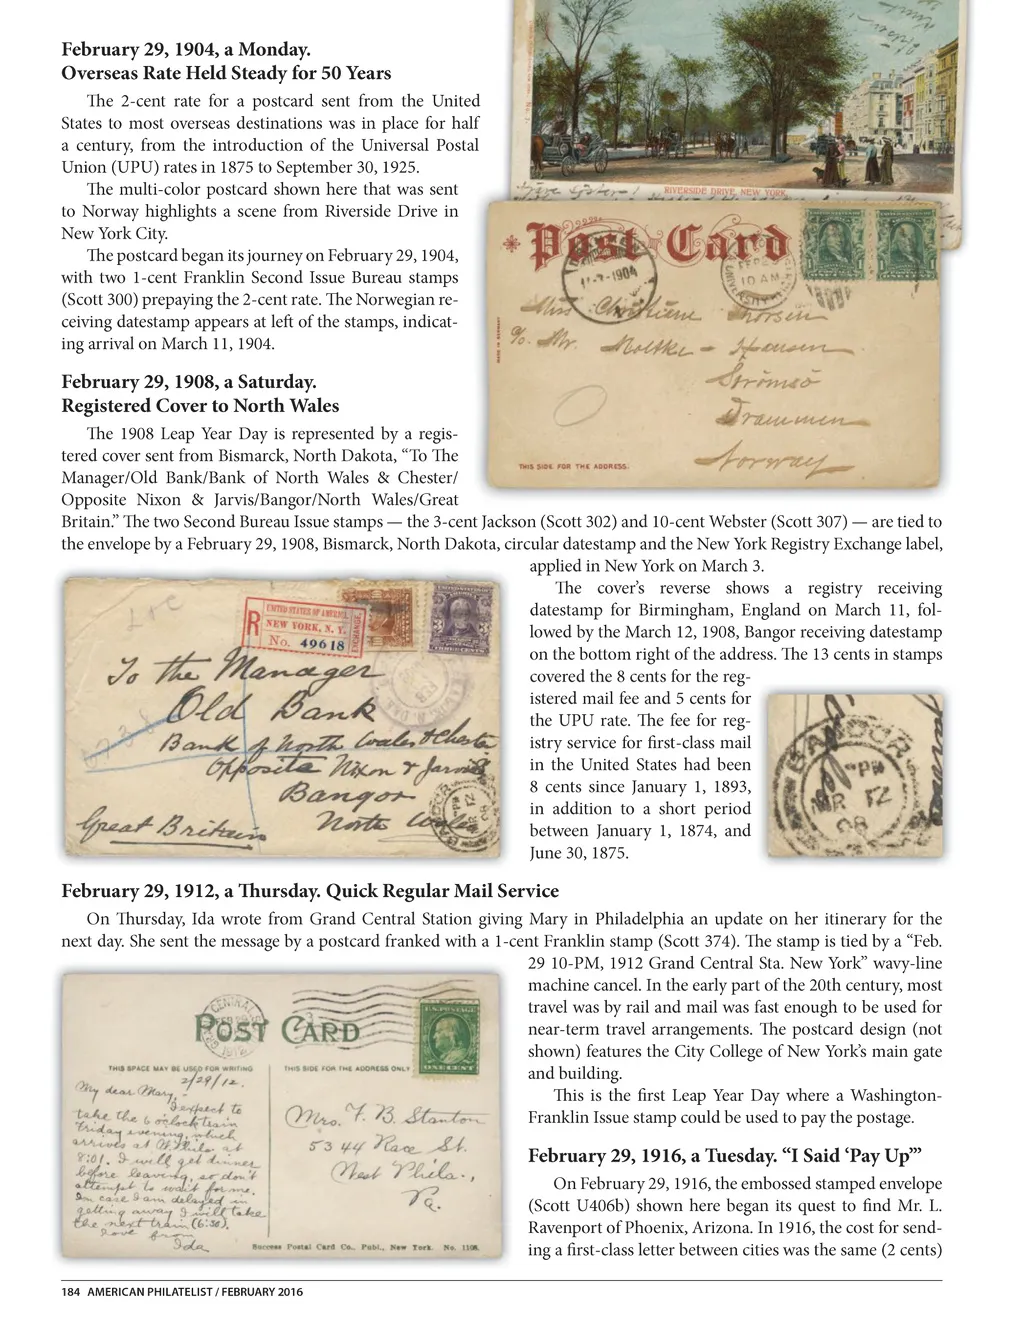 February 29, 1904, a Monday.
Overseas Rate Held Steady for 50 Years
The 2-cent rate for a postcard sent from the United
States to most overseas destinations was in place for half
a century, from the introduction of the Universal Postal
Union (UPU) rates in 1875 to September 30, 1925.
The multi-color postcard shown here that was sent
to Norway highlights a scene from Riverside Drive in
New York City.
The postcard began its journey on February 29, 1904,
with two 1-cent Franklin Second Issue Bureau stamps
(Scott 300) prepaying the 2-cent rate. The Norwegian re-
ceiving datestamp appears at left of the stamps, indicat-
ing arrival on March 11, 1904.
RIVERSIDE DRIVE, NEW YORK.
Post Card
11-3-1904
10 AM
Miss Christiene Thorsen
c/o. Mr. Moltke - Hansen
Strömsö
Drammen
Norway
MADE IN GERMANY
THIS SIDE FOR THE ADDRESS.
February 29, 1908, a Saturday.
Registered Cover to North Wales
The 1908 Leap Year Day is represented by a regis-
tered cover sent from Bismarck, North Dakota, “To The
Manager/Old Bank/Bank of North Wales & Chester/
Opposite Nixon & Jarvis/Bangor/North Wales/Great
Britain.” The two Second Bureau Issue stamps — the 3-cent Jackson (Scott 302) and 10-cent Webster (Scott 307) — are tied to
the envelope by a February 29, 1908, Bismarck, North Dakota, circular datestamp and the New York Registry Exchange label,
applied in New York on March 3.
The cover’s reverse shows a registry receiving
datestamp for Birmingham, England on March 11, fol-
lowed by the March 12, 1908, Bangor receiving datestamp
on the bottom right of the address. The 13 cents in stamps
covered the 8 cents for the reg-
istered mail fee and 5 cents for
the UPU rate. The fee for reg-
istry service for first-class mail
in the United States had been
8 cents since January 1, 1893,
in addition to a short period
between January 1, 1874, and
June 30, 1875.
UNITED STATES OF AMERICA
R NEW YORK, N. Y. EXCHANGE.
No. 49618
To the Manager
Old Bank
Bank of North Wales & Chester
Opposite Nixon & Jarvis
Bangor
North Wales
Great Britain
BANGOR
MR 12
08
February 29, 1912, a Thursday. Quick Regular Mail Service
On Thursday, Ida wrote from Grand Central Station giving Mary in Philadelphia an update on her itinerary for the
next day. She sent the message by a postcard franked with a 1-cent Franklin stamp (Scott 374). The stamp is tied by a “Feb.
29 10-PM, 1912 Grand Central Sta. New York” wavy-line
machine cancel. In the early part of the 20th century, most
travel was by rail and mail was fast enough to be used for
near-term travel arrangements. The postcard design (not
shown) features the City College of New York’s main gate
and building.
This is the first Leap Year Day where a Washington-
Franklin Issue stamp could be used to pay the postage.
POST CARD
U.S. POSTAGE
ONE CENT
THIS SPACE MAY BE USED FOR WRITING
THIS SIDE FOR THE ADDRESS ONLY
2/29/12.
My dear Mary,-
I expect to
take the 6 o'clock train
Friday evening, which
arrives at W. Phila at
8:01. I will get dinner
before leaving, so don't
attempt to wait for me.
In case I am delayed in
getting away I will take
the next train (6:30).
Love from
Ida
Mrs. F. B. Stanton
5344 Race St.
West Phila.,
Pa.
Success Postal Card Co., Publ., New York. No. 1108.
February 29, 1916, a Tuesday. “I Said ‘Pay Up’”
On February 29, 1916, the embossed stamped envelope
(Scott U406b) shown here began its quest to find Mr. L.
Ravenport of Phoenix, Arizona. In 1916, the cost for send-
ing a first-class letter between cities was the same (2 cents)
184 AMERICAN PHILATELIST / FEBRUARY 2016